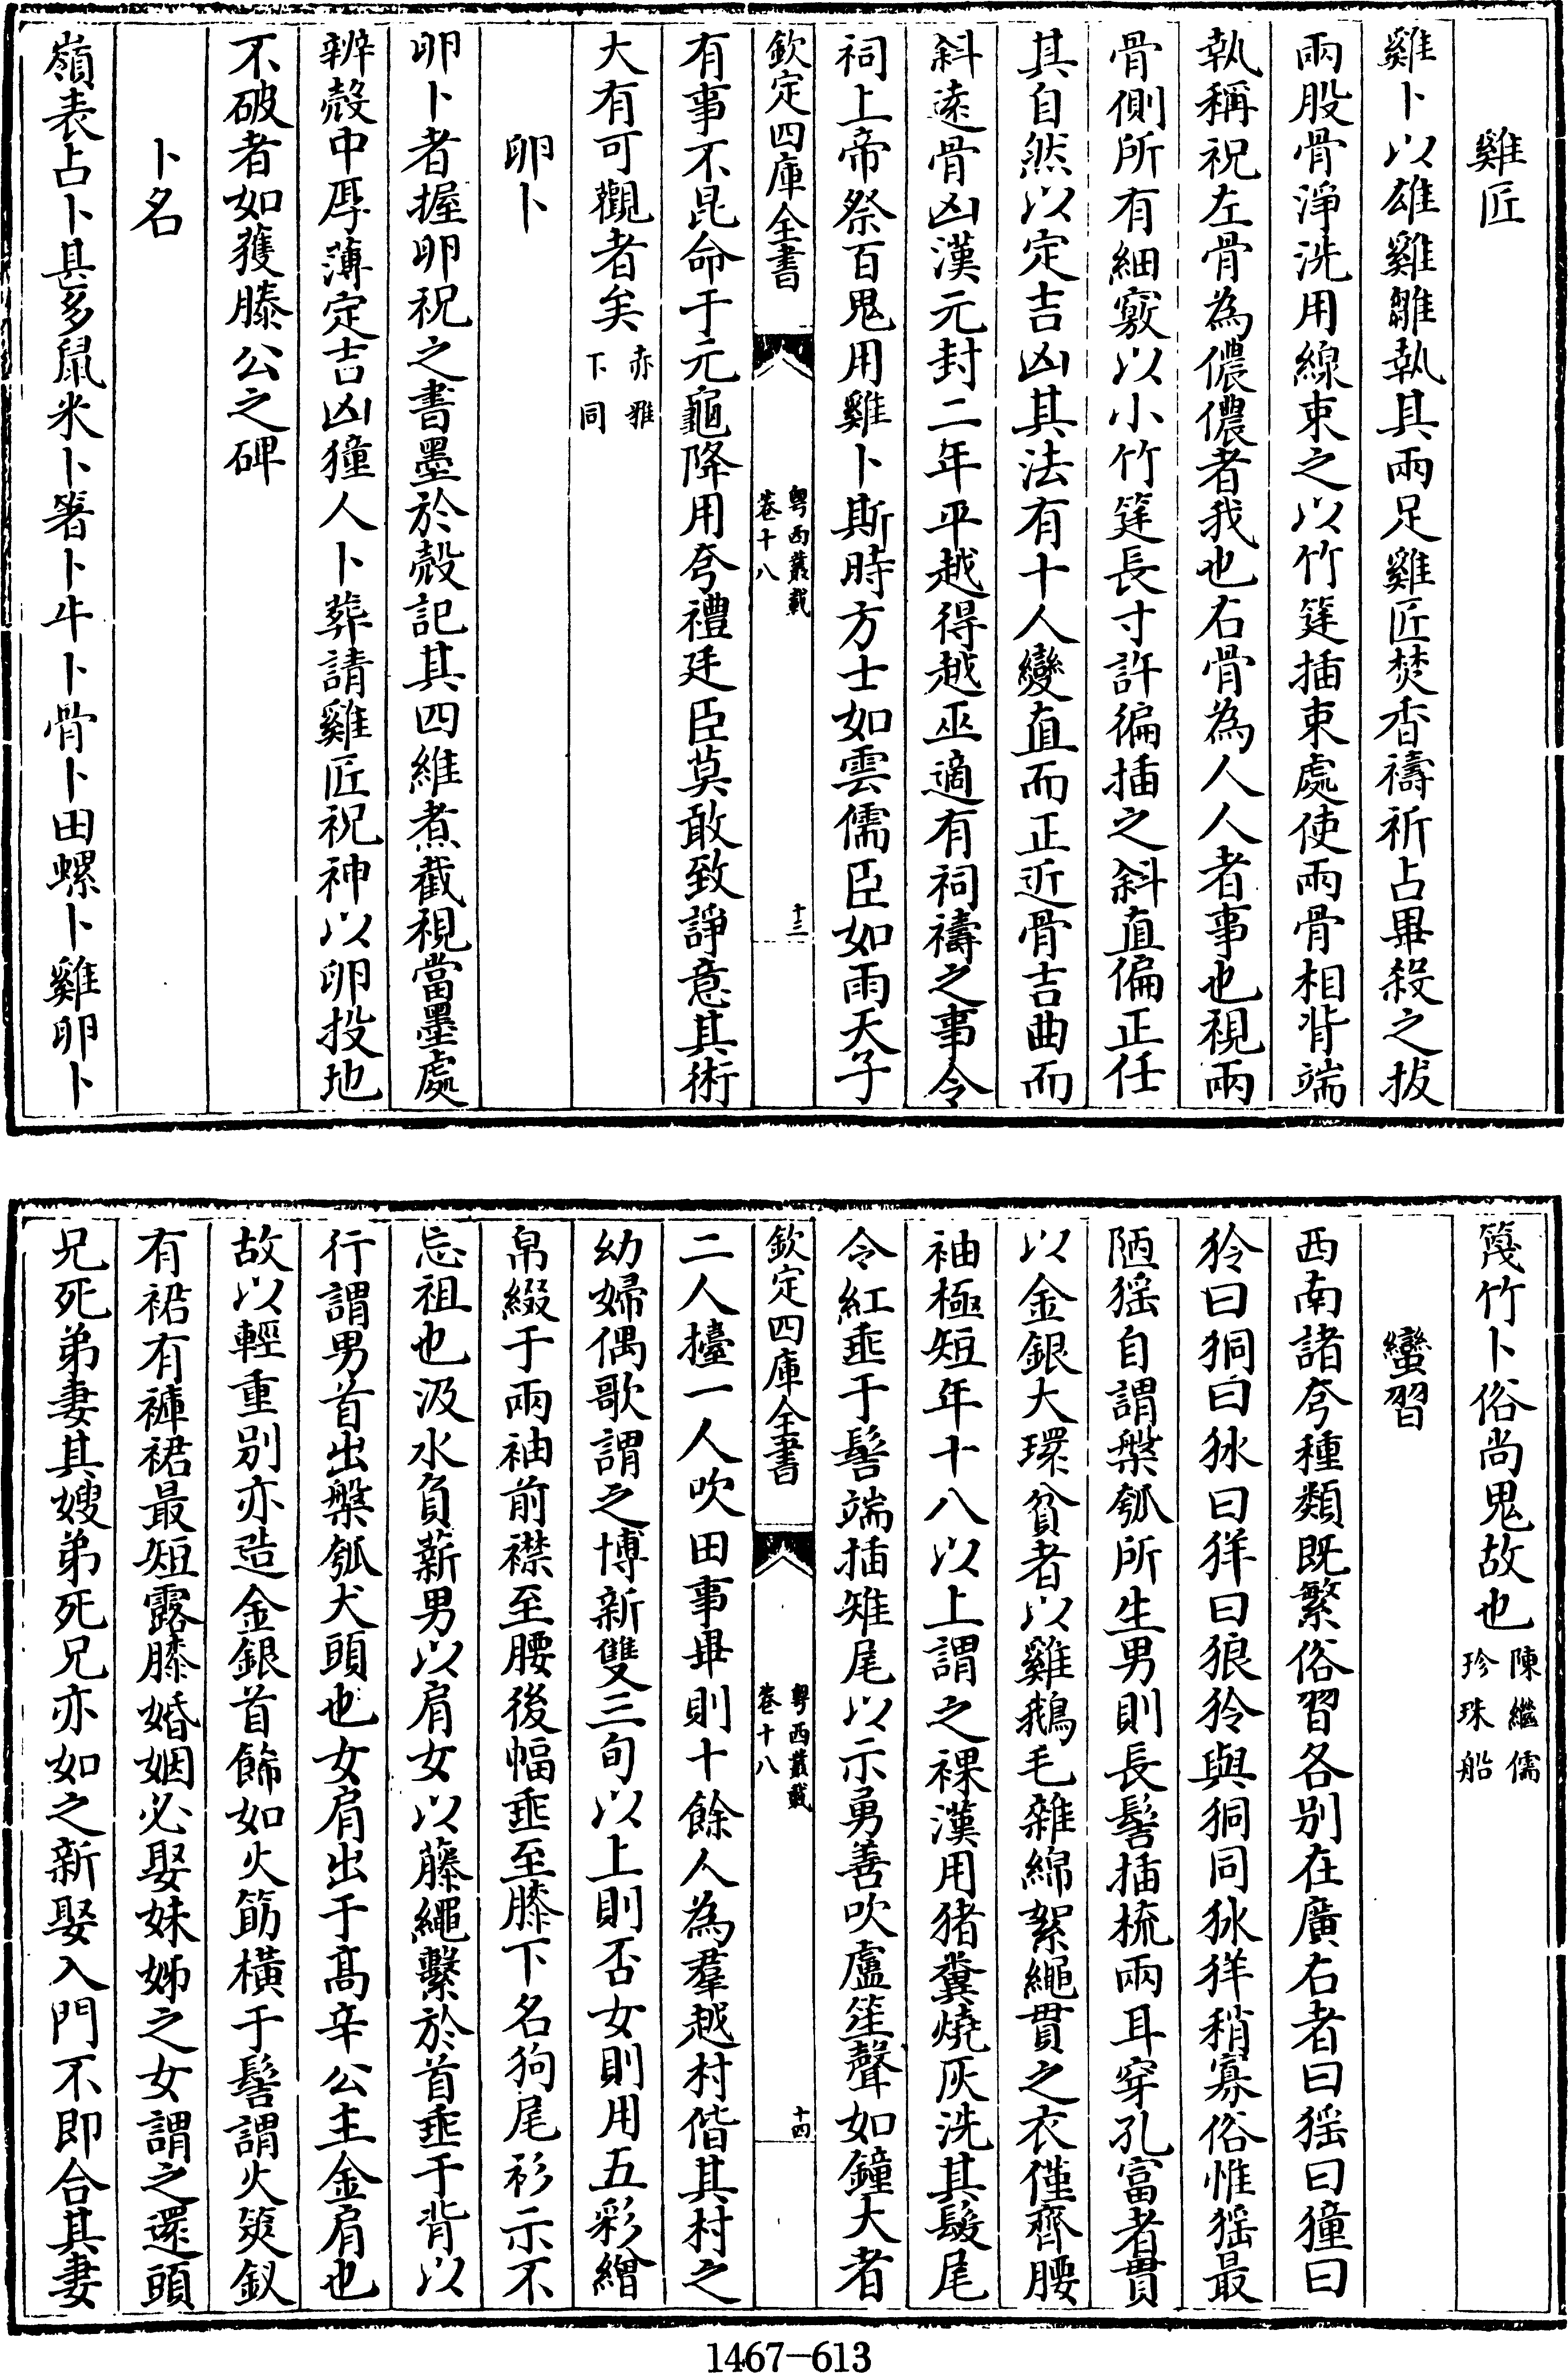 雞匠
雞卜以雄雞雛執其兩足雞匠焚香禱祈占畢殺之拔
兩股骨淨洗用線束之以竹筳插束處使兩骨相背端
執稱祝左骨為儂儂者我也右骨為人人者事也視兩
骨側所有細竅以小竹筳長寸許徧插之斜直偏正任
其自然以定吉凶其法有十人變直而正近骨吉曲而
斜遠骨凶漢元封二年平越得越巫適有祠禱之事令
祠上帝祭百鬼用雞卜斯時方士如雲儒臣如雨天子
欽定四庫全書
粵西叢載
卷十八
十三
有事不昆命于元龜降用夸禮廷臣莫敢致諍意其術
大有可觀者矣赤雅
下同
卵卜
卵卜者握卵祝之書墨於殼記其四維煮截視當墨處
辨殼中厚薄定吉凶獞人卜葬請雞匠祝神以卵投地
不破者如獲滕公之碑
卜名
嶺表占卜具多鼠米卜箸卜牛卜骨卜田螺卜雞卵卜
篾竹卜俗尚鬼故也陳繼儒
珍珠船
蠻習
西南諸夸種類既繁俗習各別在廣右者曰猺曰獞曰
狑曰狪曰㹫曰𤞏曰狼狑與狪同㹫𤞏稍寡俗惟猺最
陋猺自謂槃瓠所生男則長髻插梳兩耳穿孔富者貫
以金銀大環貧者以雞鵝毛雜綿絮繩貫之衣僅齊腰
袖極短年十八以上謂之裸漢用猪糞燒灰洗其髮尾
令紅垂于髻端插雉尾以示勇善吹盧笙聲如鐘大者
欽定四庫全書
粵西叢載
卷十八
十四
二人擡一人吹田事畢則十餘人為羣越村偕其村之
幼婦偶歌謂之博新雙三旬以上則否女則用五彩繒
帛綴于兩袖前襟至腰後幅垂至膝下名狗尾衫示不
忘祖也汲水負薪男以肩女以藤繩繫於首垂于背以
行謂男首出槃瓠犬頭也女肩出于髙辛公主金肩也
故以輕重別亦造金銀首飾如火筯橫于髻謂火筴釵
有裙有褲裙最短露膝婚姻必娶妹姊之女謂之還頭
兄死弟妻其嫂弟死兄亦如之新娶入門不即合其妻
1467—613